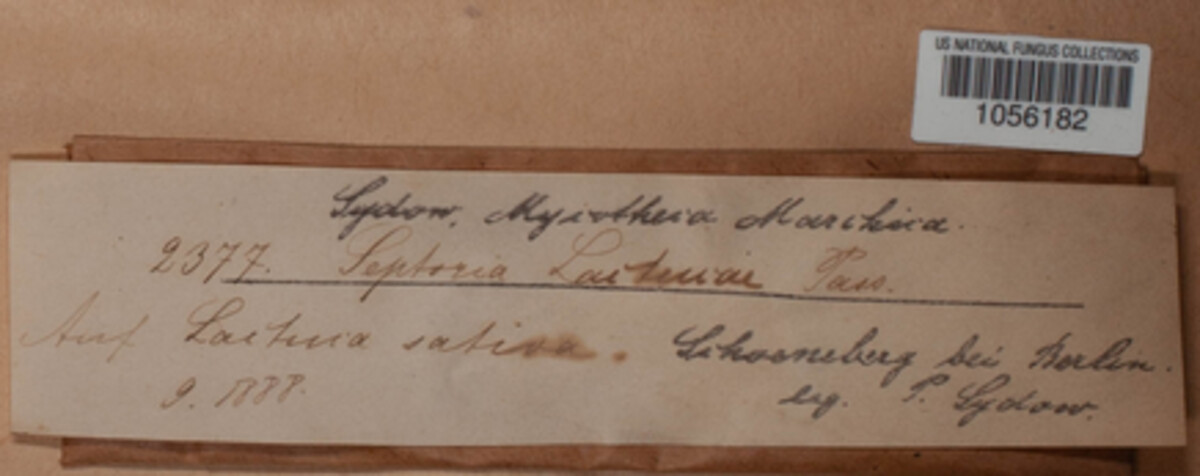 US NATIONAL FUNGUS COLLECTIONS
1056182
Sydow, Mycotheca Marchica.
2377. Septoria Lactucae Pass.
Auf Lactuca sativa. Schoeneberg bei Berlin.
9. 1888. leg. P. Sydow.